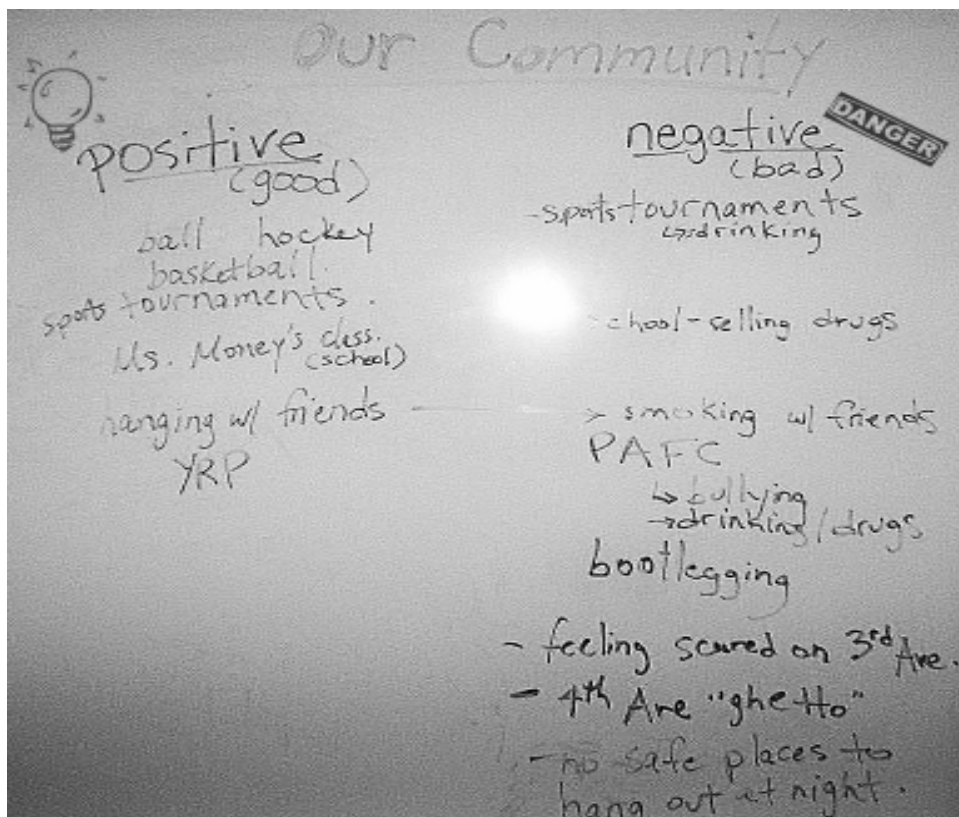 Our Community
positive
(good)
ball hockey
basketball.
sports tournaments.
Ms. Money's class.
(school)
hanging w/ friends
YRP
DANGER
negative
(bad)
-sports tournaments
↳drinking
chool-selling drugs
> smoking w/ friends
PAFC
↳ bullying
→drinking/drugs
bootlegging
- feeling scared on 3rd Ave.
- 4th Ave "ghetto"
- no safe places to
hang out at night.